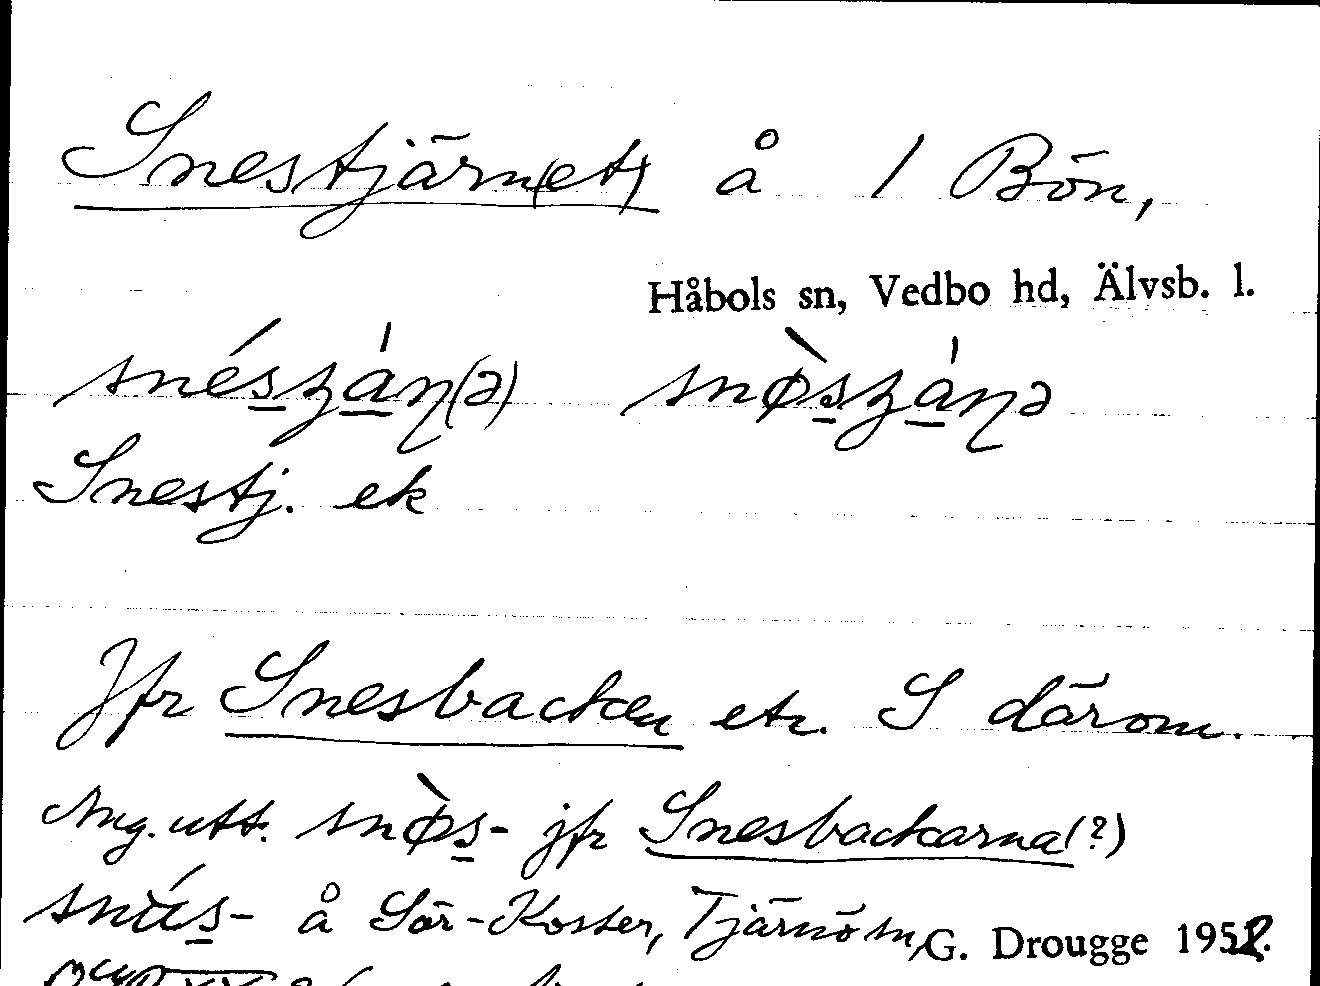 Snestjärn(et) å 1 Bön,
Håbols sn, Vedbo hd, Älvsb. l.
snésʒáɳ(ə) snø̀sʒáɳə
Snestj. ek
Jfr Snesbacken etc. S därom.
Ang. utt. snø̀s- jfr Snesbackarna(?)
snús- å Sör-Koster, Tjärnö sn,
G. Drougge 1952.